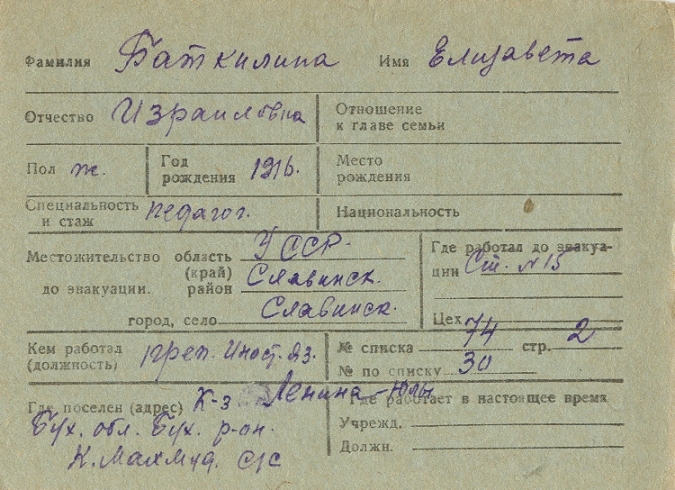 Фамилия Баткилина Имя Елизавета
Отчество Израиловна Отношение к главе семьи
Пол ж. Год рождения 1916. Место рождения
Специальность и стаж педагог. Национальность
Местожительство область УССР. Где работал до эвакуа-
(край) ции Ст. №15
до эвакуации. район Славинск.
город, село Славинск. Цех
Кем работал (должность) преп. Иност. яз. № списка 74 стр. 2
№ по списку 30
Где поселен (адрес) К-з Ленина-Юлы Где работает в настоящее время
Бух. обл. Бух. р-он. Учрежд.
К. Махмуд. с/с Должн.